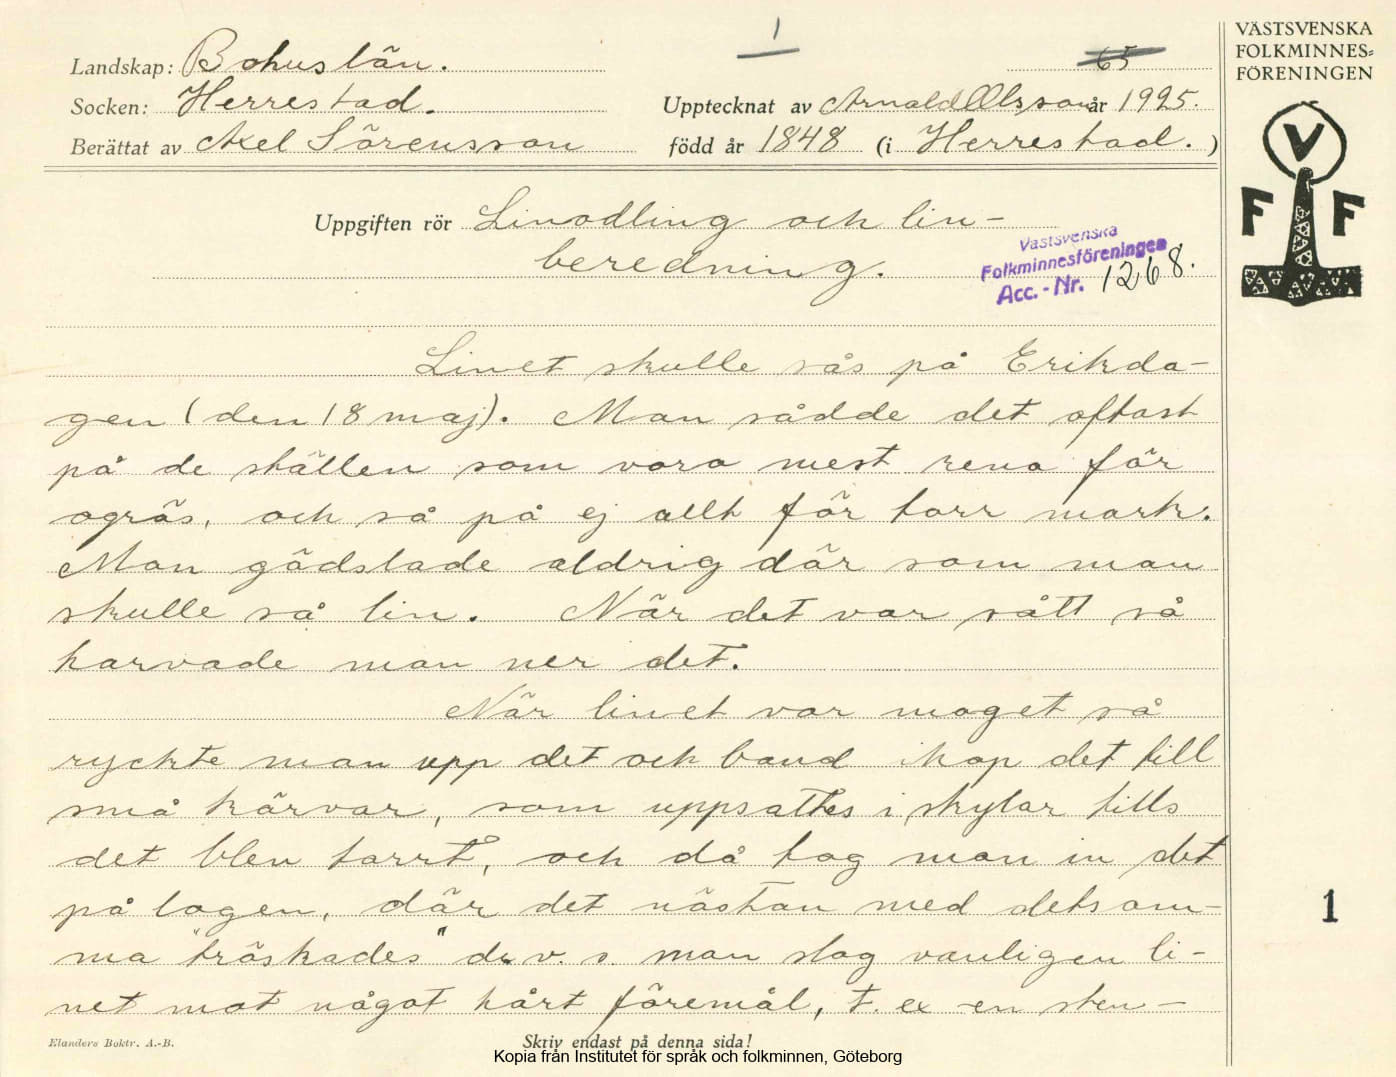 1
65
VÄSTSVENSKA
FOLKMINNES=
FÖRENINGEN
Landskap: Bohuslän.
Socken: Herrestad. Upptecknat av Arnold Olsson år 1925.
Berättat av Axel Sörensson född år 1848 (i Herrestad.)
V
F F
Uppgiften rör Linodling och lin-
beredning.
Västsvenska
Folkminnesföreningen
Acc.-Nr. 1268.
Linet skulle sås på Erikda-
gen (den 18 maj). Man sådde det oftast
på de ställen som voro mest rena för
ogräs, och så på ej allt för torr mark.
Man gödslade aldrig där som man
skulle så lin. När det var sått så
harvade man ner det.
När linet var moget så
ryckte man upp det och band ihop det till
små kärvar, som uppsattes i skylar tills
det blev torrt, och då tog man in det
på logen, där det nästan med detsam-
ma "tröskades" d.v.s. man slog vanligen li-
net mot något hårt föremål, t. ex en sten-
1
Elanders Boktr. A.-B.
Skriv endast på denna sida!
Kopia från Institutet för språk och folkminnen, Göteborg